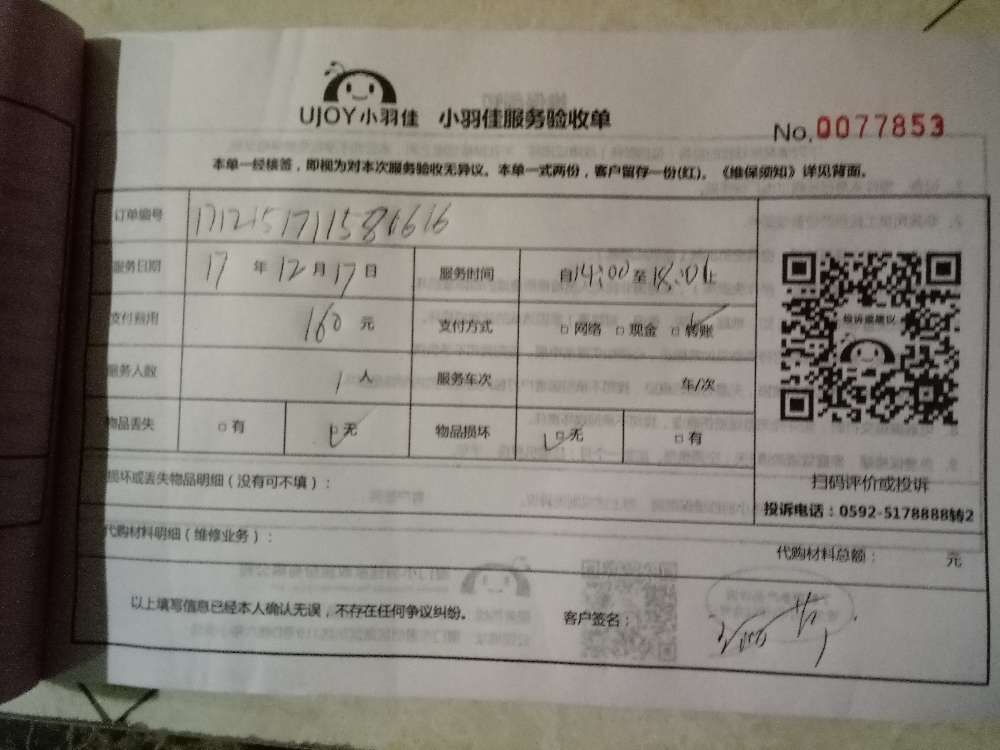 UJOY小羽佳 小羽佳服务验收单
No.0077853
本单一经核签，即视为对本次服务验收无异议。本单一式两份，客户留存一份(红)。《维保须知》详见背面。
订单编号 17121517115861616
服务日期 17 年 12 月 17 日 服务时间 自14:00至18:01止
支付费用 160 元 支付方式 □网络 □现金 □转账
服务人数 1 人 服务车次 车/次
物品丢失 □有 □无 物品损坏 □无 □有
投诉或建议
扫码评价或投诉
投诉电话：0592-5178888转2
损坏或丢失物品明细（没有可不填）：
代购材料明细（维修业务）： 代购材料总额： 元
以上填写信息已经本人确认无误，不存在任何争议纠纷。 客户签名：